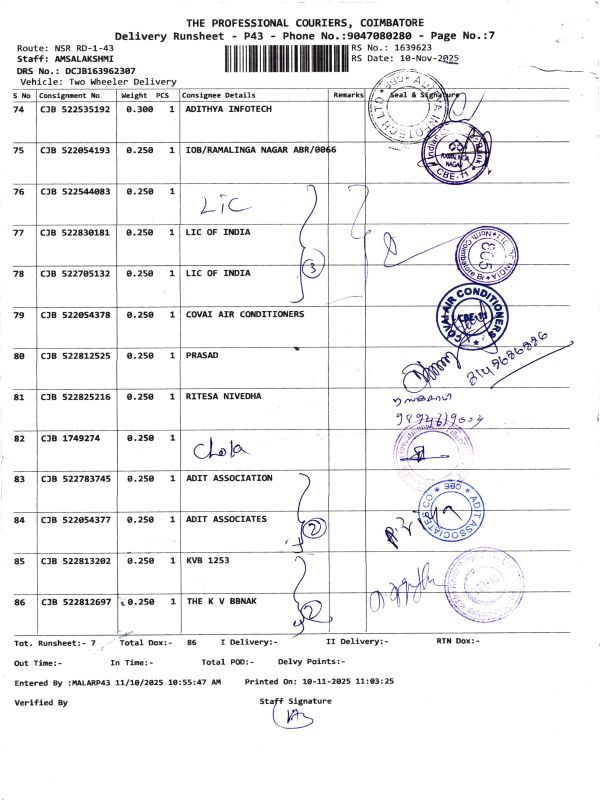 THE PROFESSIONAL COURIERS, COIMBATORE
Delivery Runsheet - P43 - Phone No.:9047080280 - Page No.:7
Route: NSR RD-1-43 RS No.: 1639623
Staff: AMSALAKSHMI RS Date: 10-Nov-2025
DRS No.: DCJB163962307
Vehicle: Two Wheeler Delivery
S No Consignment No Weight PCS Consignee Details Remarks Seal & Signature
74 CJB 522535192 0.300 1 ADITHYA INFOTECH
75 CJB 522054193 0.250 1 IOB/RAMALINGA NAGAR ABR/0066
CBE-11
76 CJB 522544083 0.250 1 LIC
77 CJB 522830181 0.250 1 LIC OF INDIA
805
78 CJB 522705132 0.250 1 LIC OF INDIA
3
79 CJB 522054378 0.250 1 COVAI AIR CONDITIONERS
COVAI AIR CONDITIONERS
CBE-11
80 CJB 522812525 0.250 1 PRASAD
81 CJB 522825216 0.250 1 RITESA NIVEDHA
82 CJB 1749274 0.250 1 Chola
83 CJB 522783745 0.250 1 ADIT ASSOCIATION
84 CJB 522054377 0.250 1 ADIT ASSOCIATES
2
ADIT ASSOCIATES & CO CBE
85 CJB 522813202 0.250 1 KVB 1253
86 CJB 522812697 0.250 1 THE K V BBNAK
2
Tot. Runsheet:- 7 Total Dox:- 86 I Delivery:- II Delivery:- RTN Dox:-
Out Time:- In Time:- Total POD:- Delvy Points:-
Entered By :MALARP43 11/10/2025 10:55:47 AM Printed On: 10-11-2025 11:03:25
Verified By Staff Signature